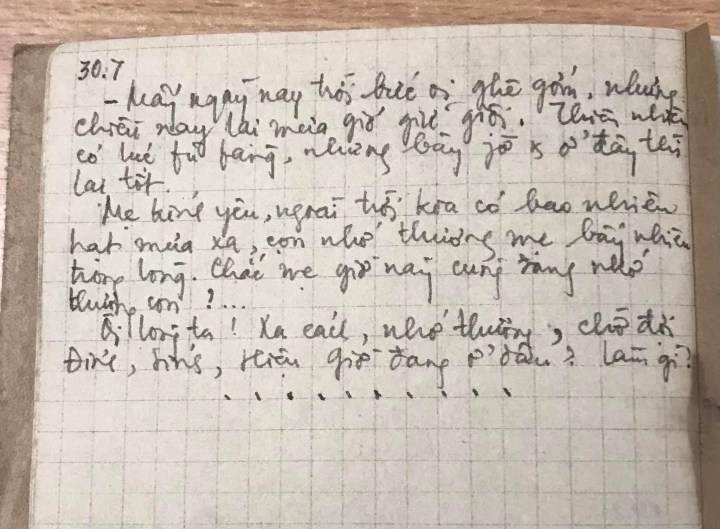 30.7
- Mấy ngày nay trời bức oi ghê gớm, nhưng
chiều nay lại mưa gió giữ giội. Thiên nhiên
có lúc fũ fàng, nhưng bây jờ ở đây thì
lại tốt.
Mẹ kính yêu, ngoài trời kia có bao nhiêu
hạt mưa xa, con nhớ thương mẹ bấy nhiêu
trong lòng. Chắc mẹ giờ này cũng đang nhớ
thương con ?...
Ôi lòng ta ! Xa cách, nhớ thương, chờ đợi
Hiệu giờ đang ở đâu? Làm gì?
. . . . . . . . . .